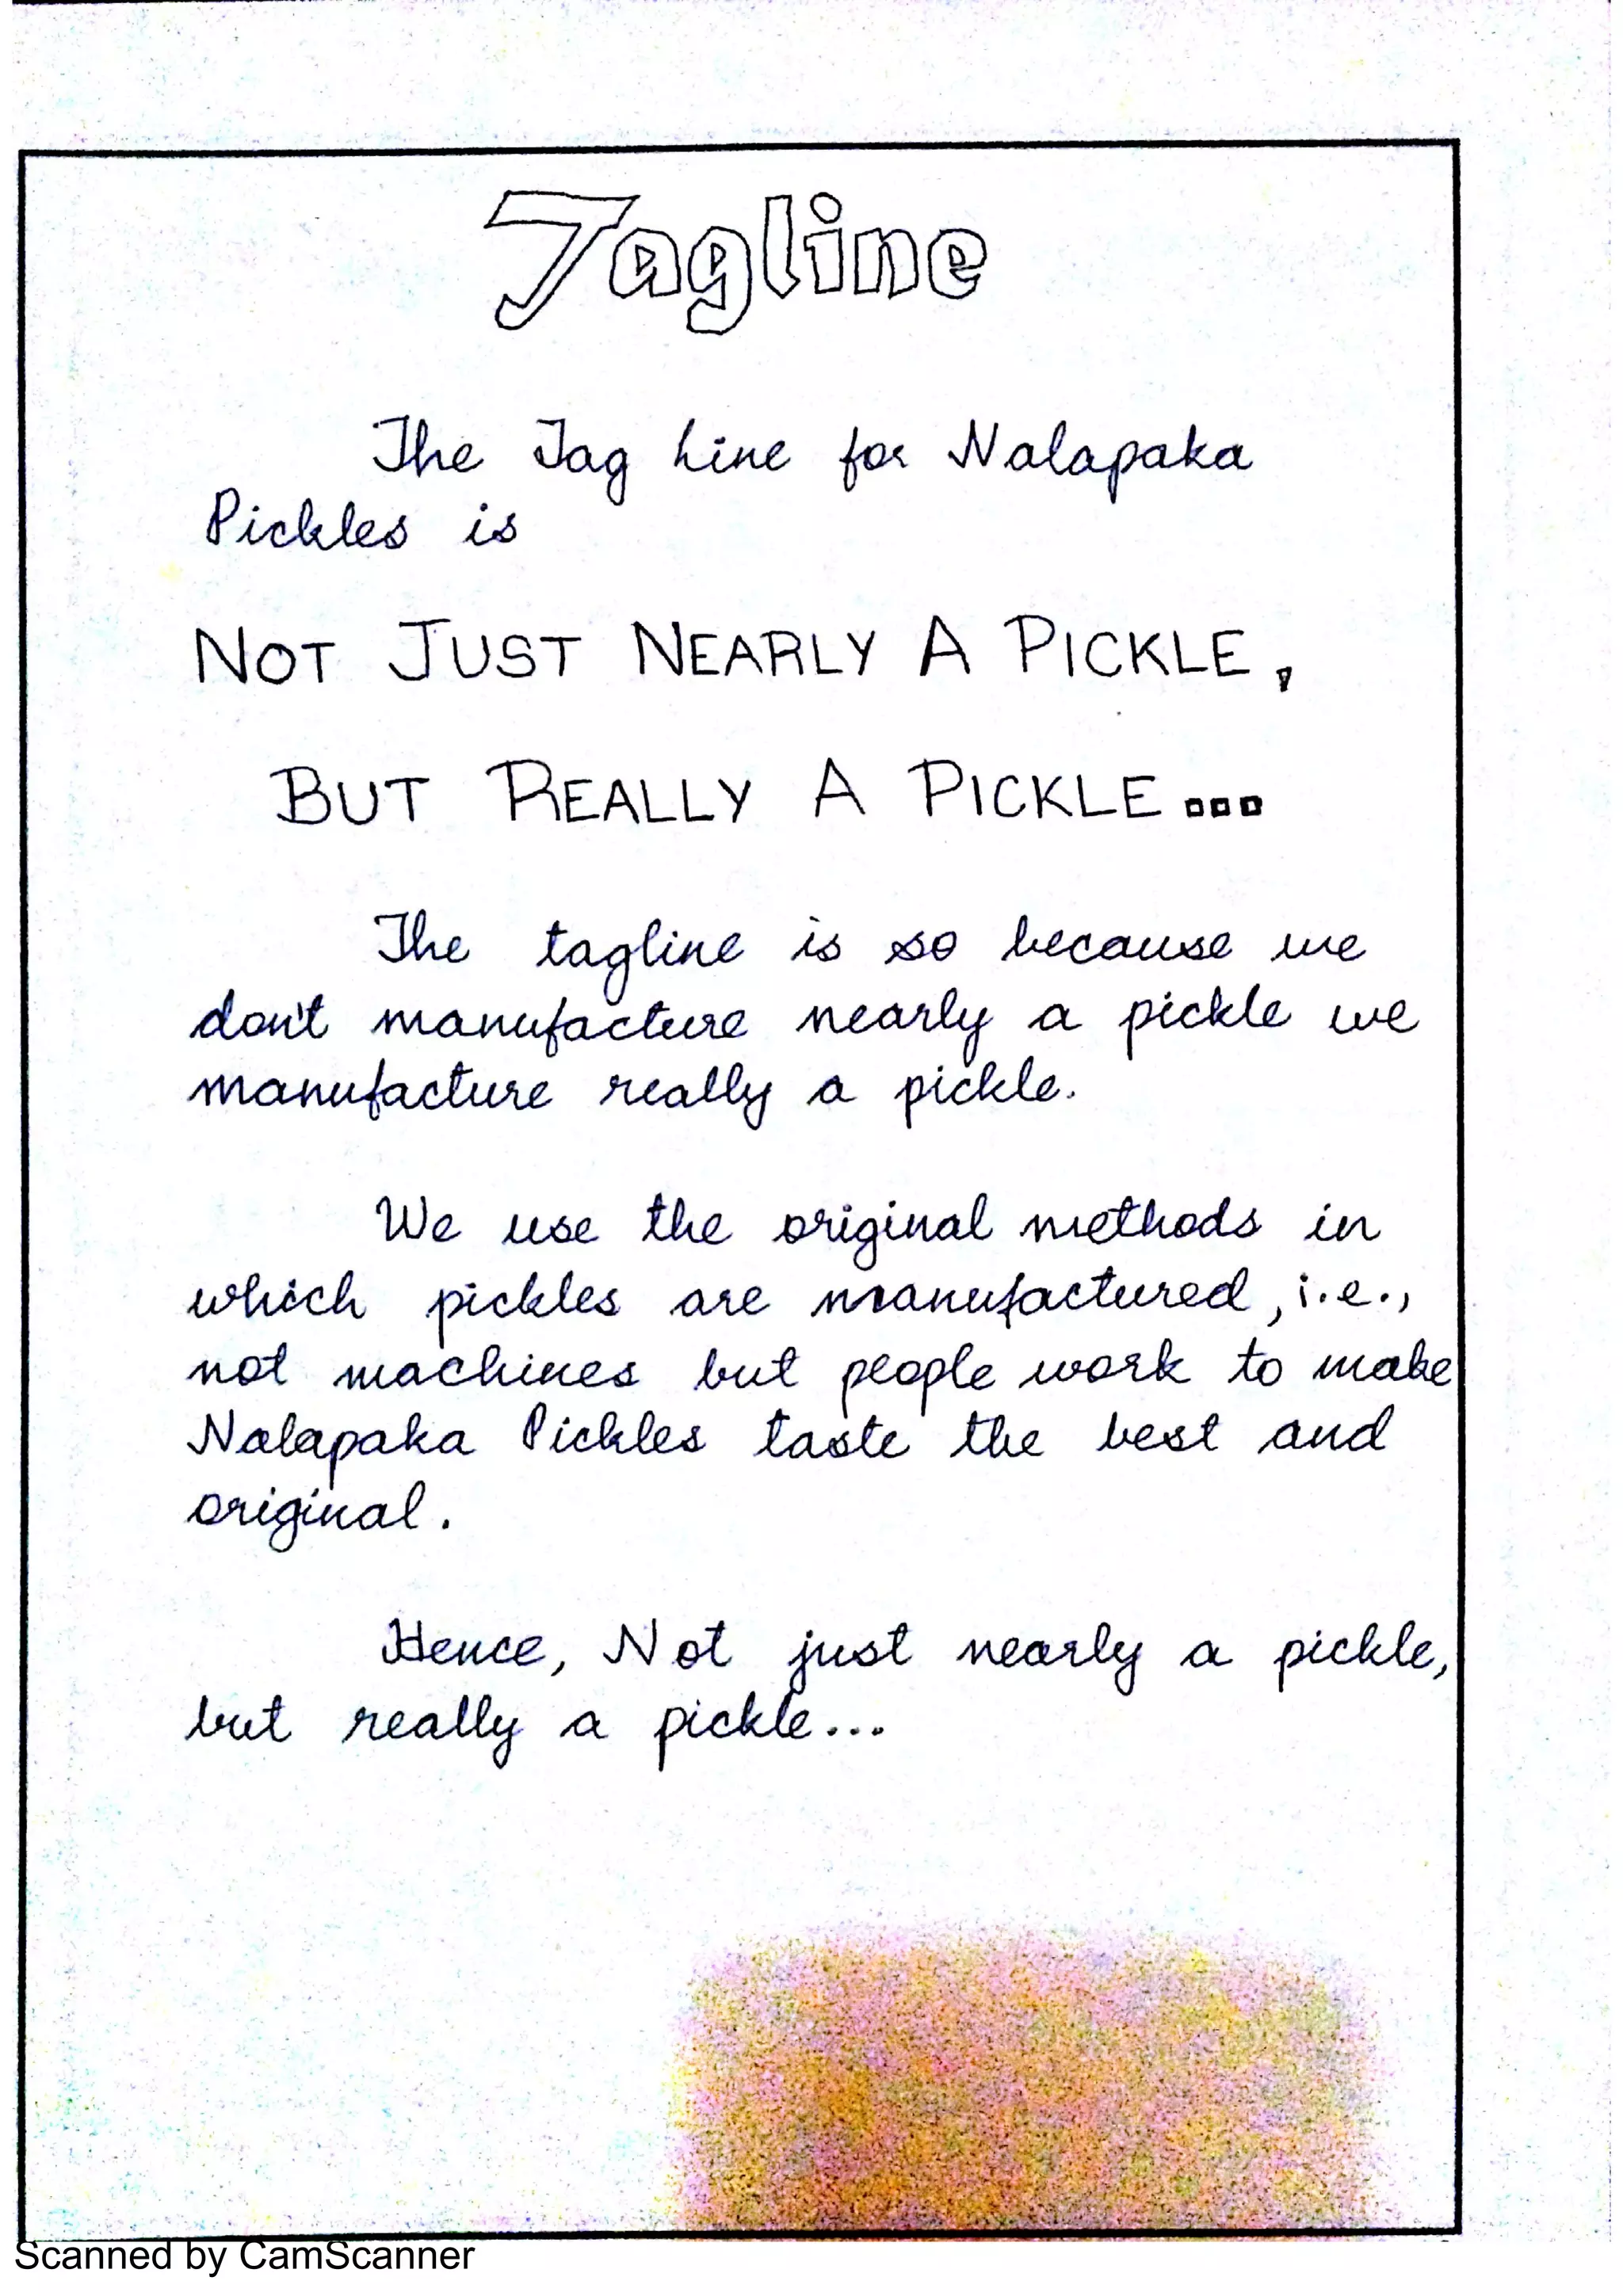 Tagline
The Tag Line for Nalapaka
Pickles is
NOT JUST NEARLY A PICKLE,
BUT REALLY A PICKLE...
The tagline is so because we
don't manufacture nearly a pickle we
manufacture really a pickle.
We use the original methods in
which pickles are manufactured, i.e.,
not machines but people work to make
Nalapaka Pickles taste the best and
original.
Hence, Not just nearly a pickle,
but really a pickle...
Scanned by CamScanner